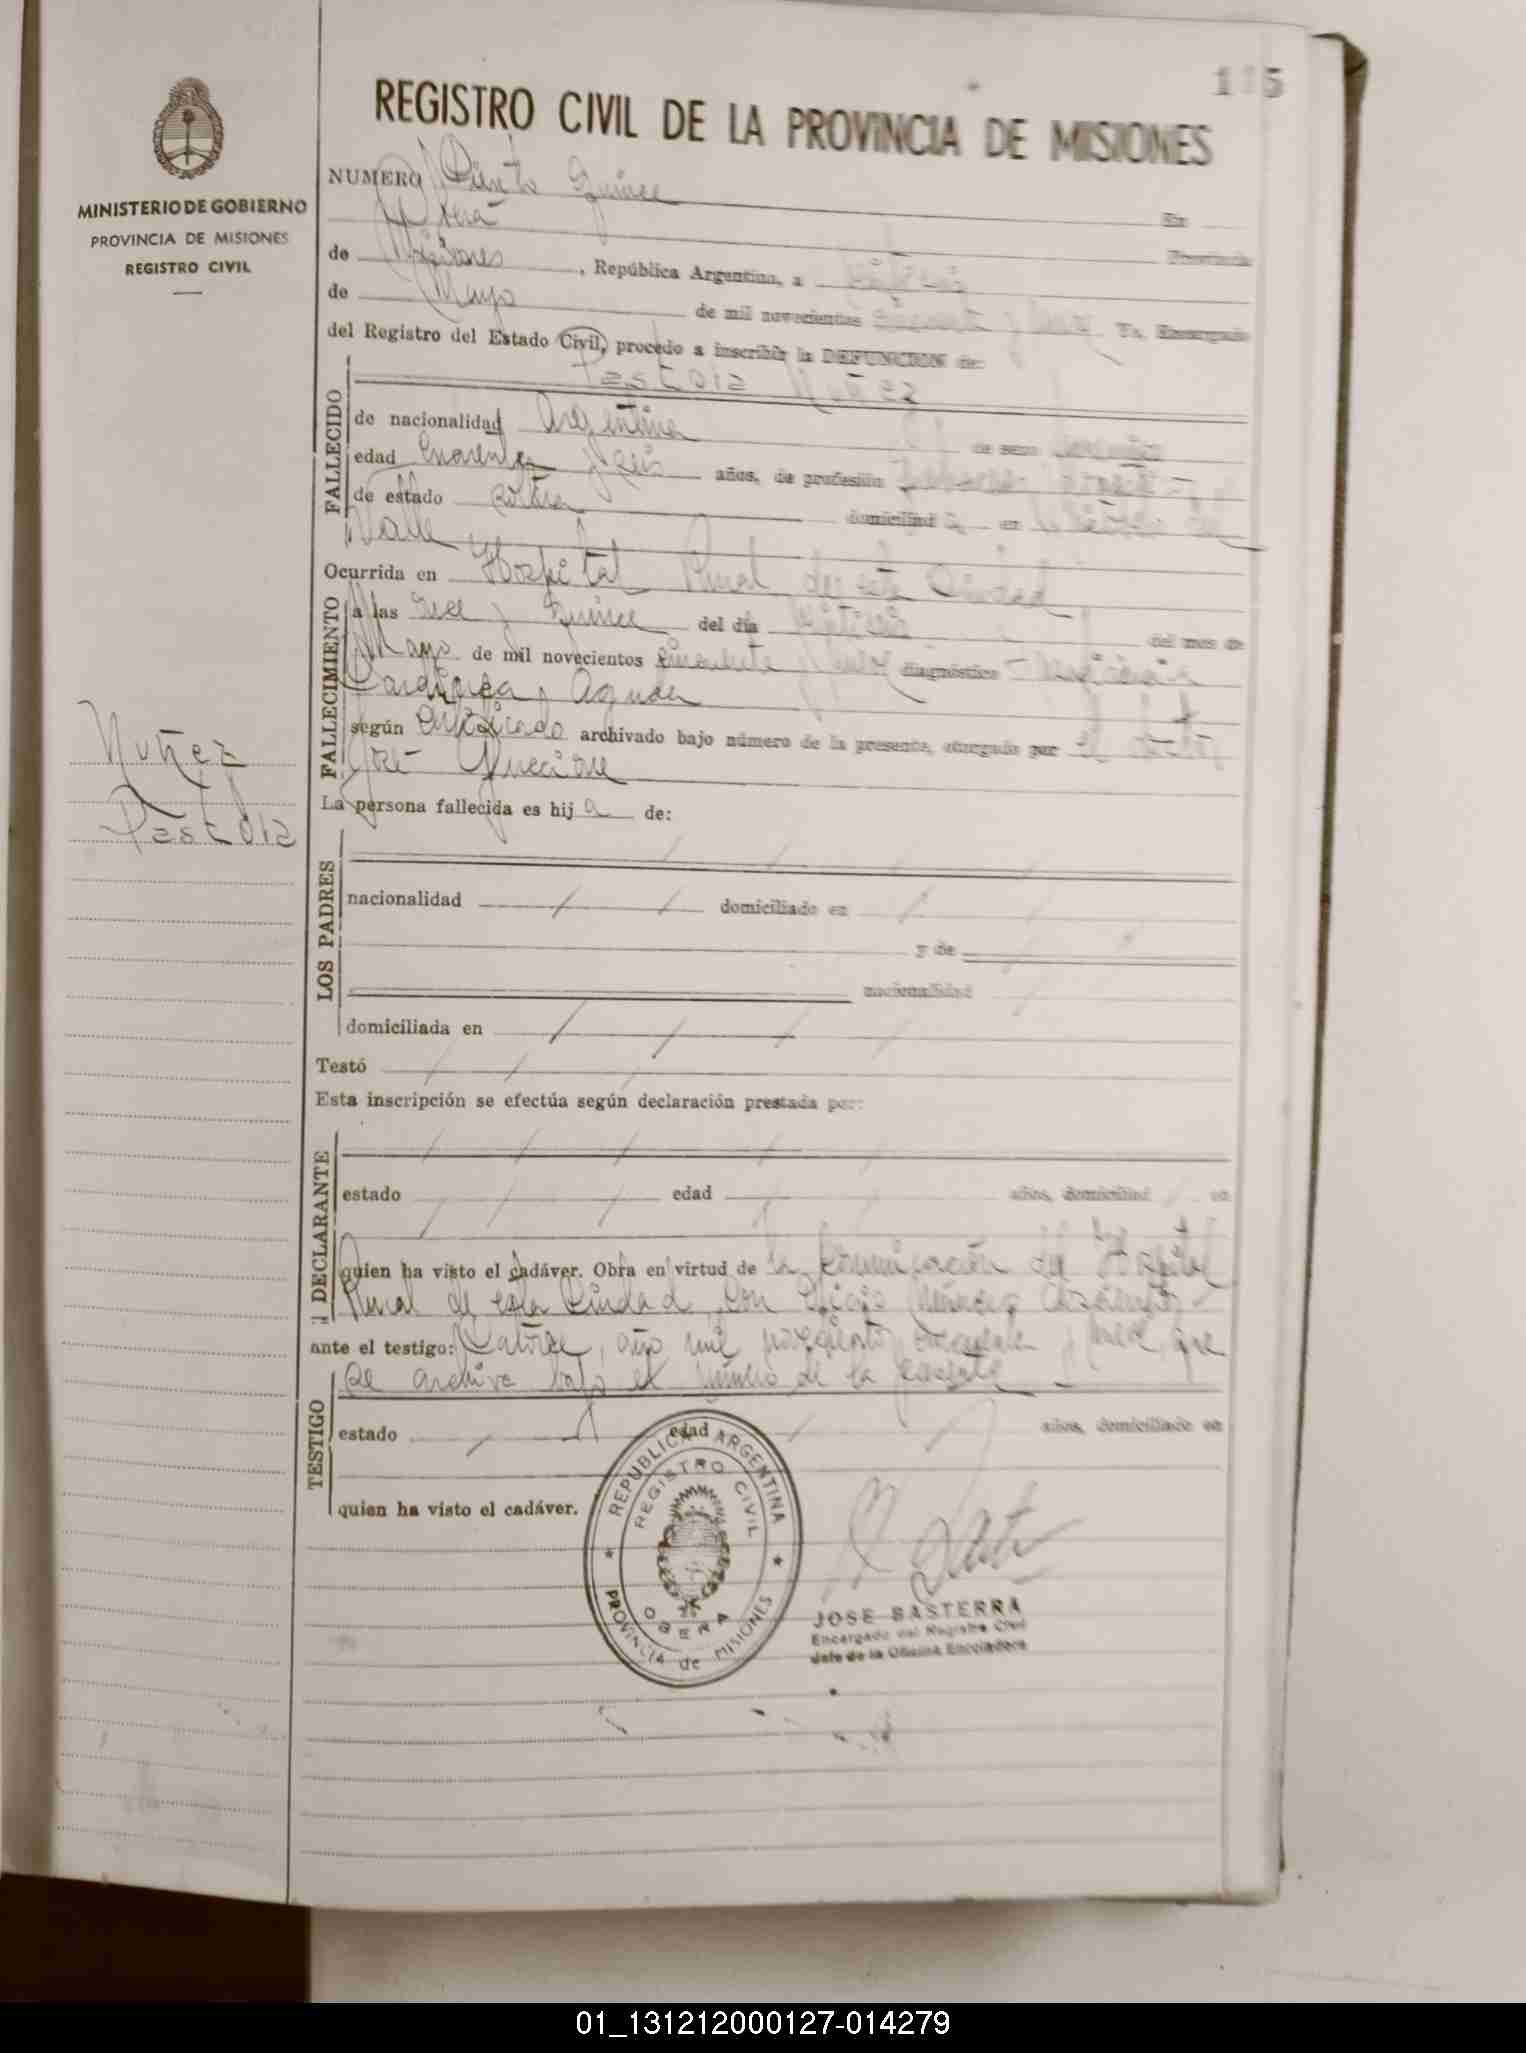 115
REGISTRO CIVIL DE LA PROVINCIA DE MISIONES
MINISTERIO DE GOBIERNO
PROVINCIA DE MISIONES
REGISTRO CIVIL
NUMERO Ciento Quince En
Oberá Provincia
de Misiones, República Argentina, a
de Mayo de mil novecientos cincuenta y nueve Yo, Encargado
del Registro del Estado Civil, procedo a inscribir la DEFUNCION de:
Pastora Nuñez
FALLECIDO
de nacionalidad Argentina de sexo femenino
edad cuarenta y seis años, de profesión
de estado soltera domiciliad a en del
Valle
Ocurrida en Hospital Rural de esta Ciudad
FALLECIMIENTO
a las y Quince del día del mes de
Mayo de mil novecientos cincuenta y nueve diagnóstico Insuficiencia
Cardíaca Aguda
según certificado archivado bajo número de la presente, otorgado por el doctor
José
La persona fallecida es hij a de:
Nuñez
Pastora
LOS PADRES
nacionalidad domiciliado en
y de
nacionalidad
domiciliada en
Testó
Esta inscripción se efectúa según declaración prestada por:
DECLARANTE
estado edad años, domiciliad en
quien ha visto el cadáver. Obra en virtud de la comunicación del Hospital
Rural de esta Ciudad, con
ante el testigo: Catorce, año mil novecientos cincuenta y nueve, que
se archiva bajo el número de la presente
TESTIGO
estado edad años, domiciliado en
quien ha visto el cadáver.
REPUBLICA ARGENTINA
REGISTRO CIVIL
OBERA
PROVINCIA de MISIONES
JOSE BASTERRA
Encargado del Registro Civil
Jefe de la Oficina Enroladora
01_131212000127-014279